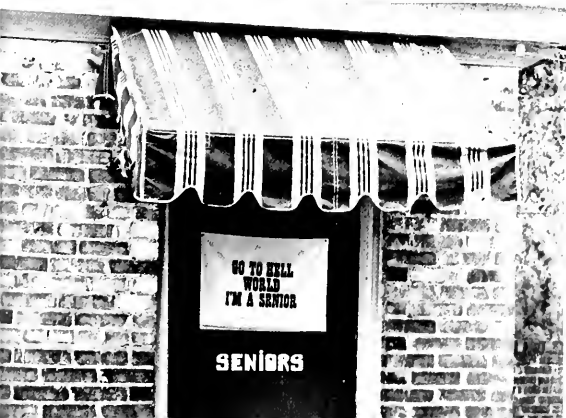 GO TO HELL
WORLD
I'M A SENIOR
SENIORS